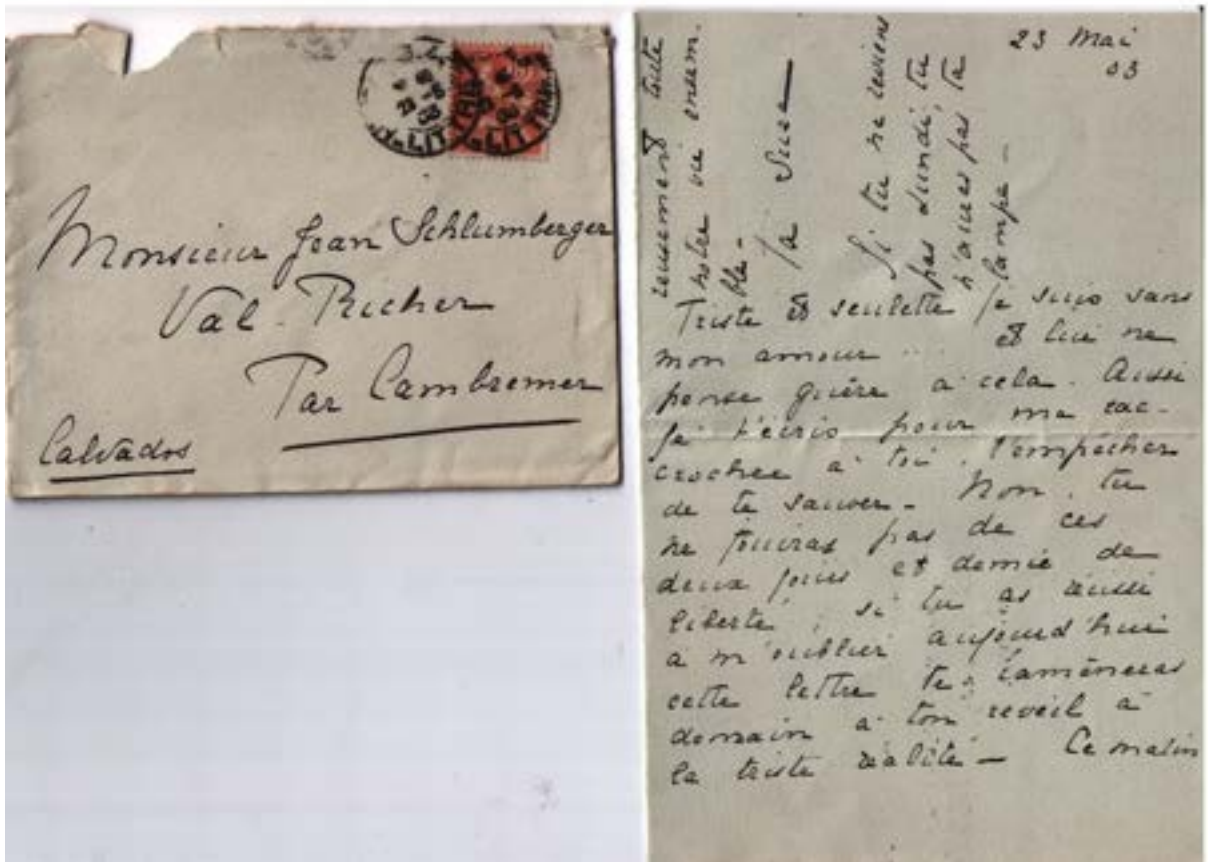 Monsieur Jean Schlumberger
Val-Richer
Par Cambremer
Calvados
23 Mai
03
Triste et seulette je suis sans
mon amour ... et lui ne
pense guère à cela. Aussi
je t'écris pour me rac-
crocher à toi. t'empêcher
de te sauver - Non, tu
ne jouiras pas de ces
deux jours et demie de
liberté, si tu as réussi
à m'oublier aujourd'hui
cette lettre te ramèneras
demain à ton réveil à
la triste réalité - Ce matin
reusement toute
notre vie ensem-
ble -
Ta Suze
Si tu ne reviens
pas lundi, tu
n'auras pas ta
lampe -